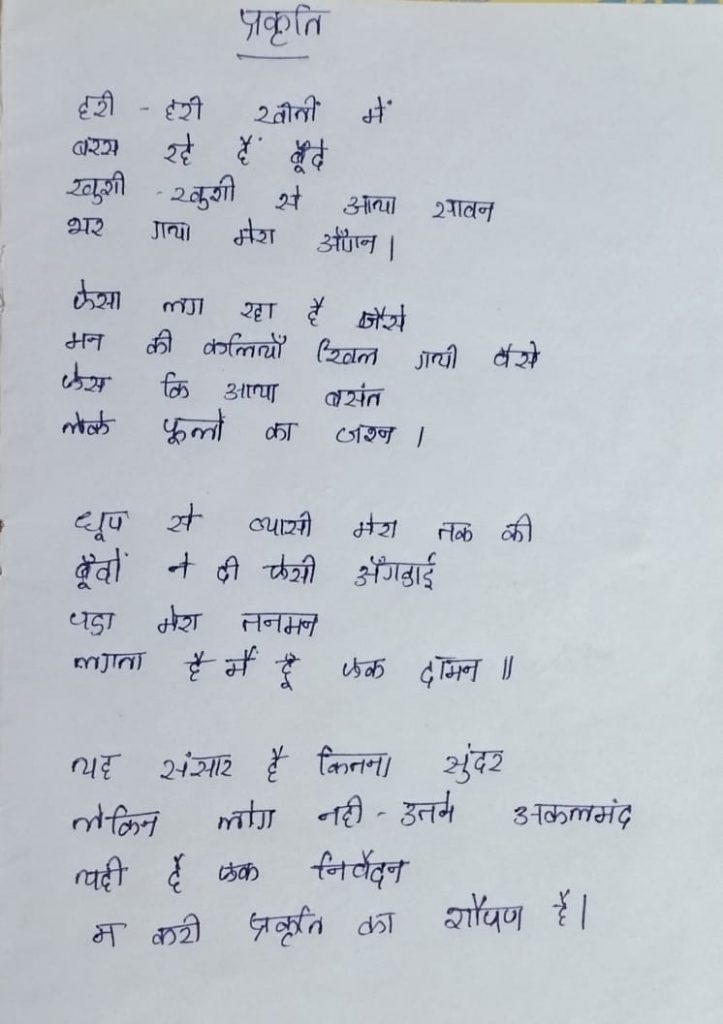 प्रकृति
हरी - हरी खेतों में
बरस रहे हैं बूँदे
खुशी - खुशी से आया सावन
भर गया मेरा आँगन।
ऐसा लग रहा है जैसे
मन की कलियाँ खिल गयी वैसे
ऐसा कि आया बसंत
लेके फूलों का जश्न।
धूप से प्यासी मेरा तक की
बूँदों ने दी ऐसी अँगडाई
पडा मेरा तनमन
लगता है मैं हूँ एक दामन॥
यह संसार है कितना सुंदर
लेकिन लोग नही - उतने अकलमंद
यही है एक निवेदन
म करी प्रकृति का शोषण है।